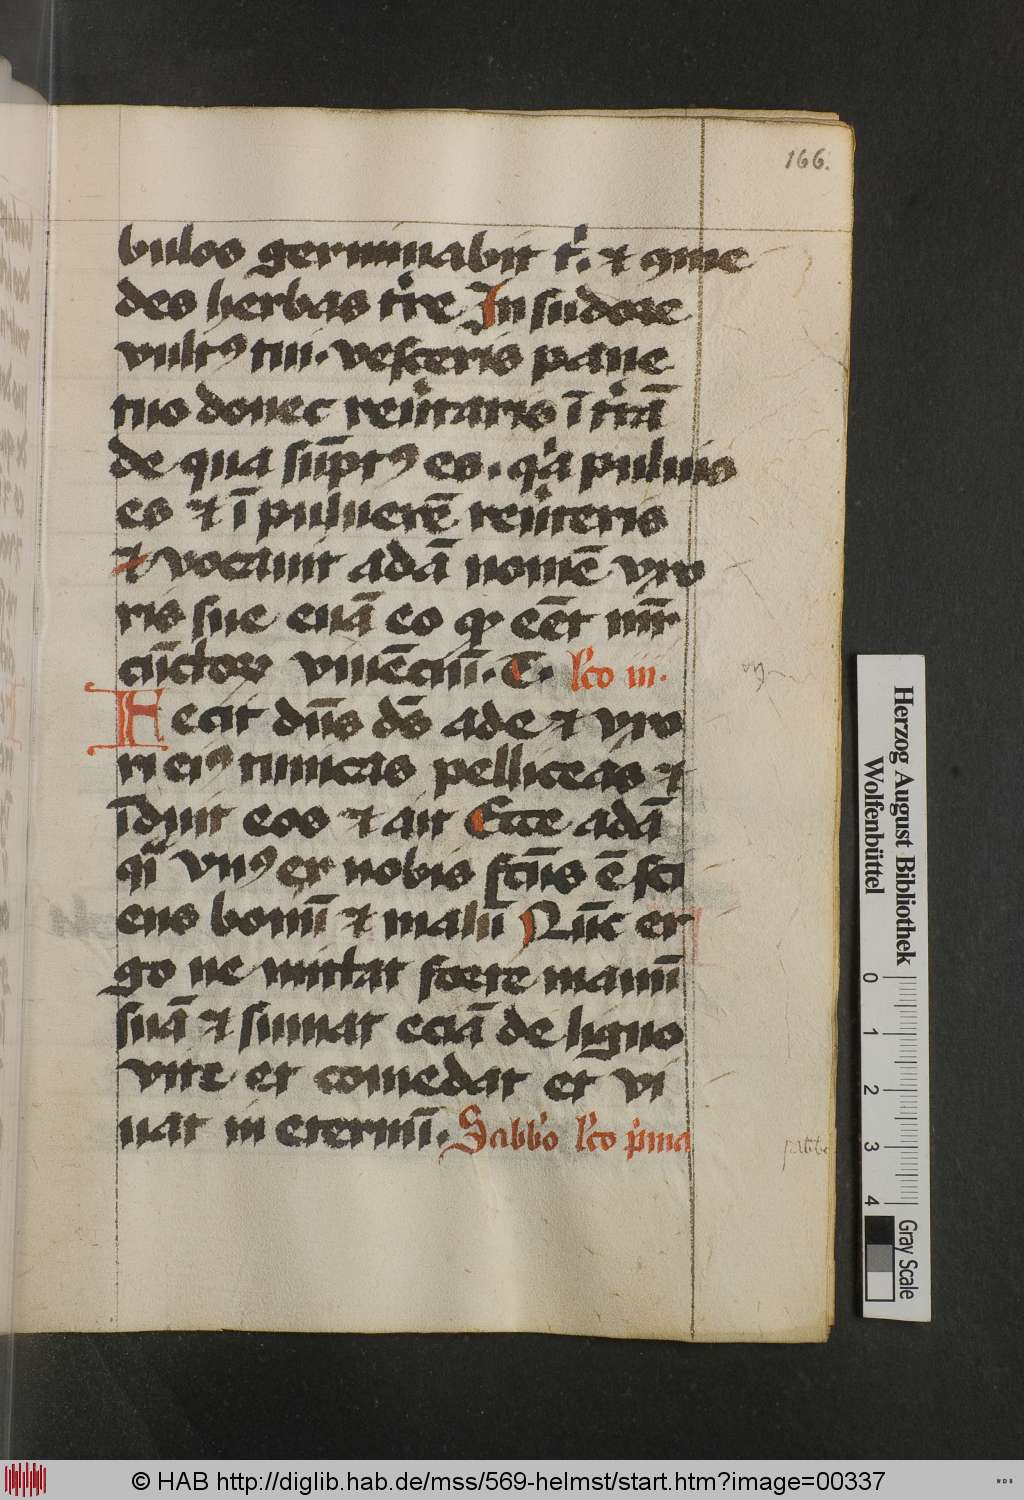 166.
bulos germinabit t᷒. et ꝯme
des herbas tr̃e In sudore
vultꝰ tui. vesceris pane
tuo donec reũtaris ĩ tr̃ã
de qua sũptꝰ es. qͥa puluis
es et ĩ puluerẽ reũteris
et vocauit adã nomẽ vxo
ris sue euã eo ꝙ eẽt mr̃
cũctoꝝ viuẽciũ. T. lc̃o iii.
Fecit dñs ds̃ ade et vxo
ri eiꝰ tunicas pelliceas et
ĩduit eos et ait Ecce adã
qͣi vnꝰ ex nobis fc̃us ẽ sci
ens bonũ et malũ Nũc er
go ne mittat forte manũ
suã et sumat eciã de ligno
vite et comedat et vi
uat in eternũ. Sabb̃o lc̃o p̃ma
sabb̃o
Herzog August Bibliothek
Wolfenbüttel
0 1 2 3 4
Gray Scale
© HAB http://diglib.hab.de/mss/569-helmst/start.htm?image=00337